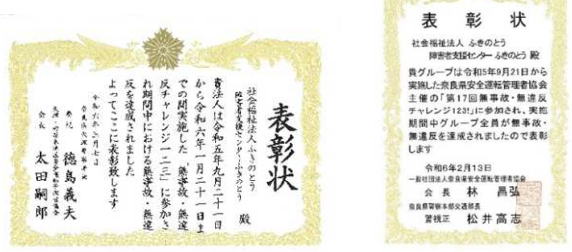 表彰状
社会福祉法人ふきのとう
障害者支援センターふきのとう 殿
貴法人は令和五年九月二十一日
から令和六年一月二十一日ま
での間実施した「無事故・無違
反チャレンジ一二三」に参加さ
れ期間中における無事故・無違
反を達成されました
よってここに表彰致します
徳島義夫
会長 太田嗣郎
表彰状
社会福祉法人 ふきのとう
障害者支援センターふきのとう 殿
貴グループは令和5年9月21日から
実施した奈良県安全運転管理者協会
主催の「第17回無事故・無違反
チャレンジ123!」に参加され、実施
期間中グループ全員が無事故・
無違反を達成されましたので表彰
します
令和6年2月13日
一般社団法人奈良県安全運転管理者協会
会長 林 昌弘
奈良県警察本部交通部長
警視正 松井高志